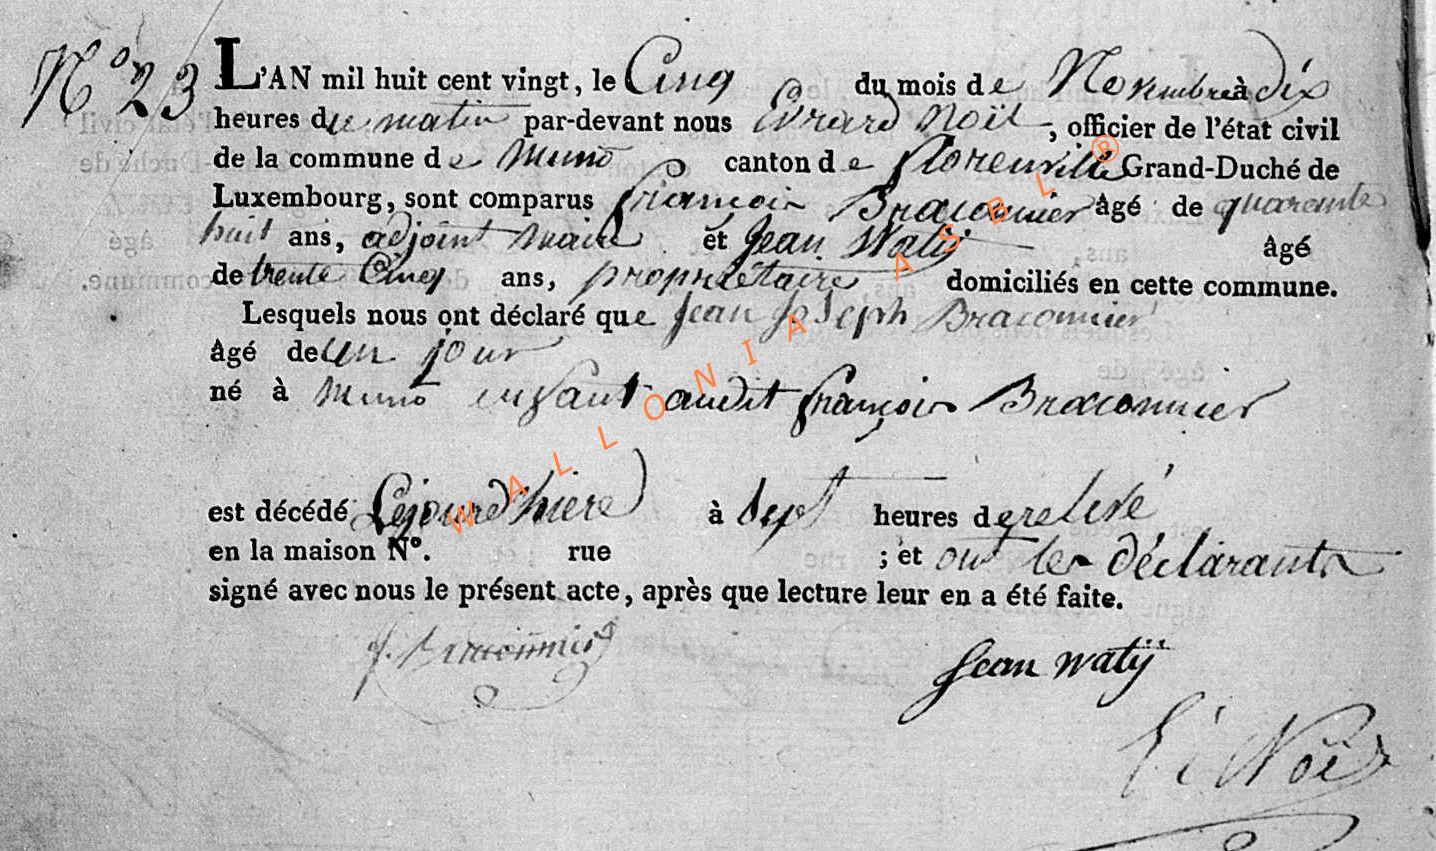 N° 23
L'AN mil huit cent vingt, le Cinq du mois de Novembre à dix
heures du matin par-devant nous Evrard Noël, officier de l'état civil
de la commune de Muno canton de florenville Grand-Duché de
Luxembourg, sont comparus françois Braconnier âgé de quarente
huit ans, adjoint maire et Jean Watij âgé
de trente Cinq ans, propriétaire domiciliés en cette commune.
Lesquels nous ont déclaré que Jean Joseph Braconnier
âgé de un jour
né à Muno enfant audit françois Braconnier
est décédé Lejourd'hiere à sept heures de relevé
en la maison N°. rue ; et ont les déclarants
signé avec nous le présent acte, après que lecture leur en a été faite.
f. Braconnier
Jean watij
E Noël
WALLONIA ASBL ®